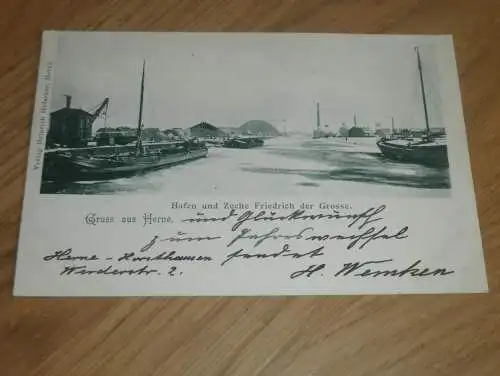 Verlag Heinrich
Hafen und Zeche Friedrich der Grosse.
Gruss aus Herne.
und Glückwunsch
zum Jahreswechsel
sendet
H. Wemken
Herne - Horsthausen
Werderstr. 2.